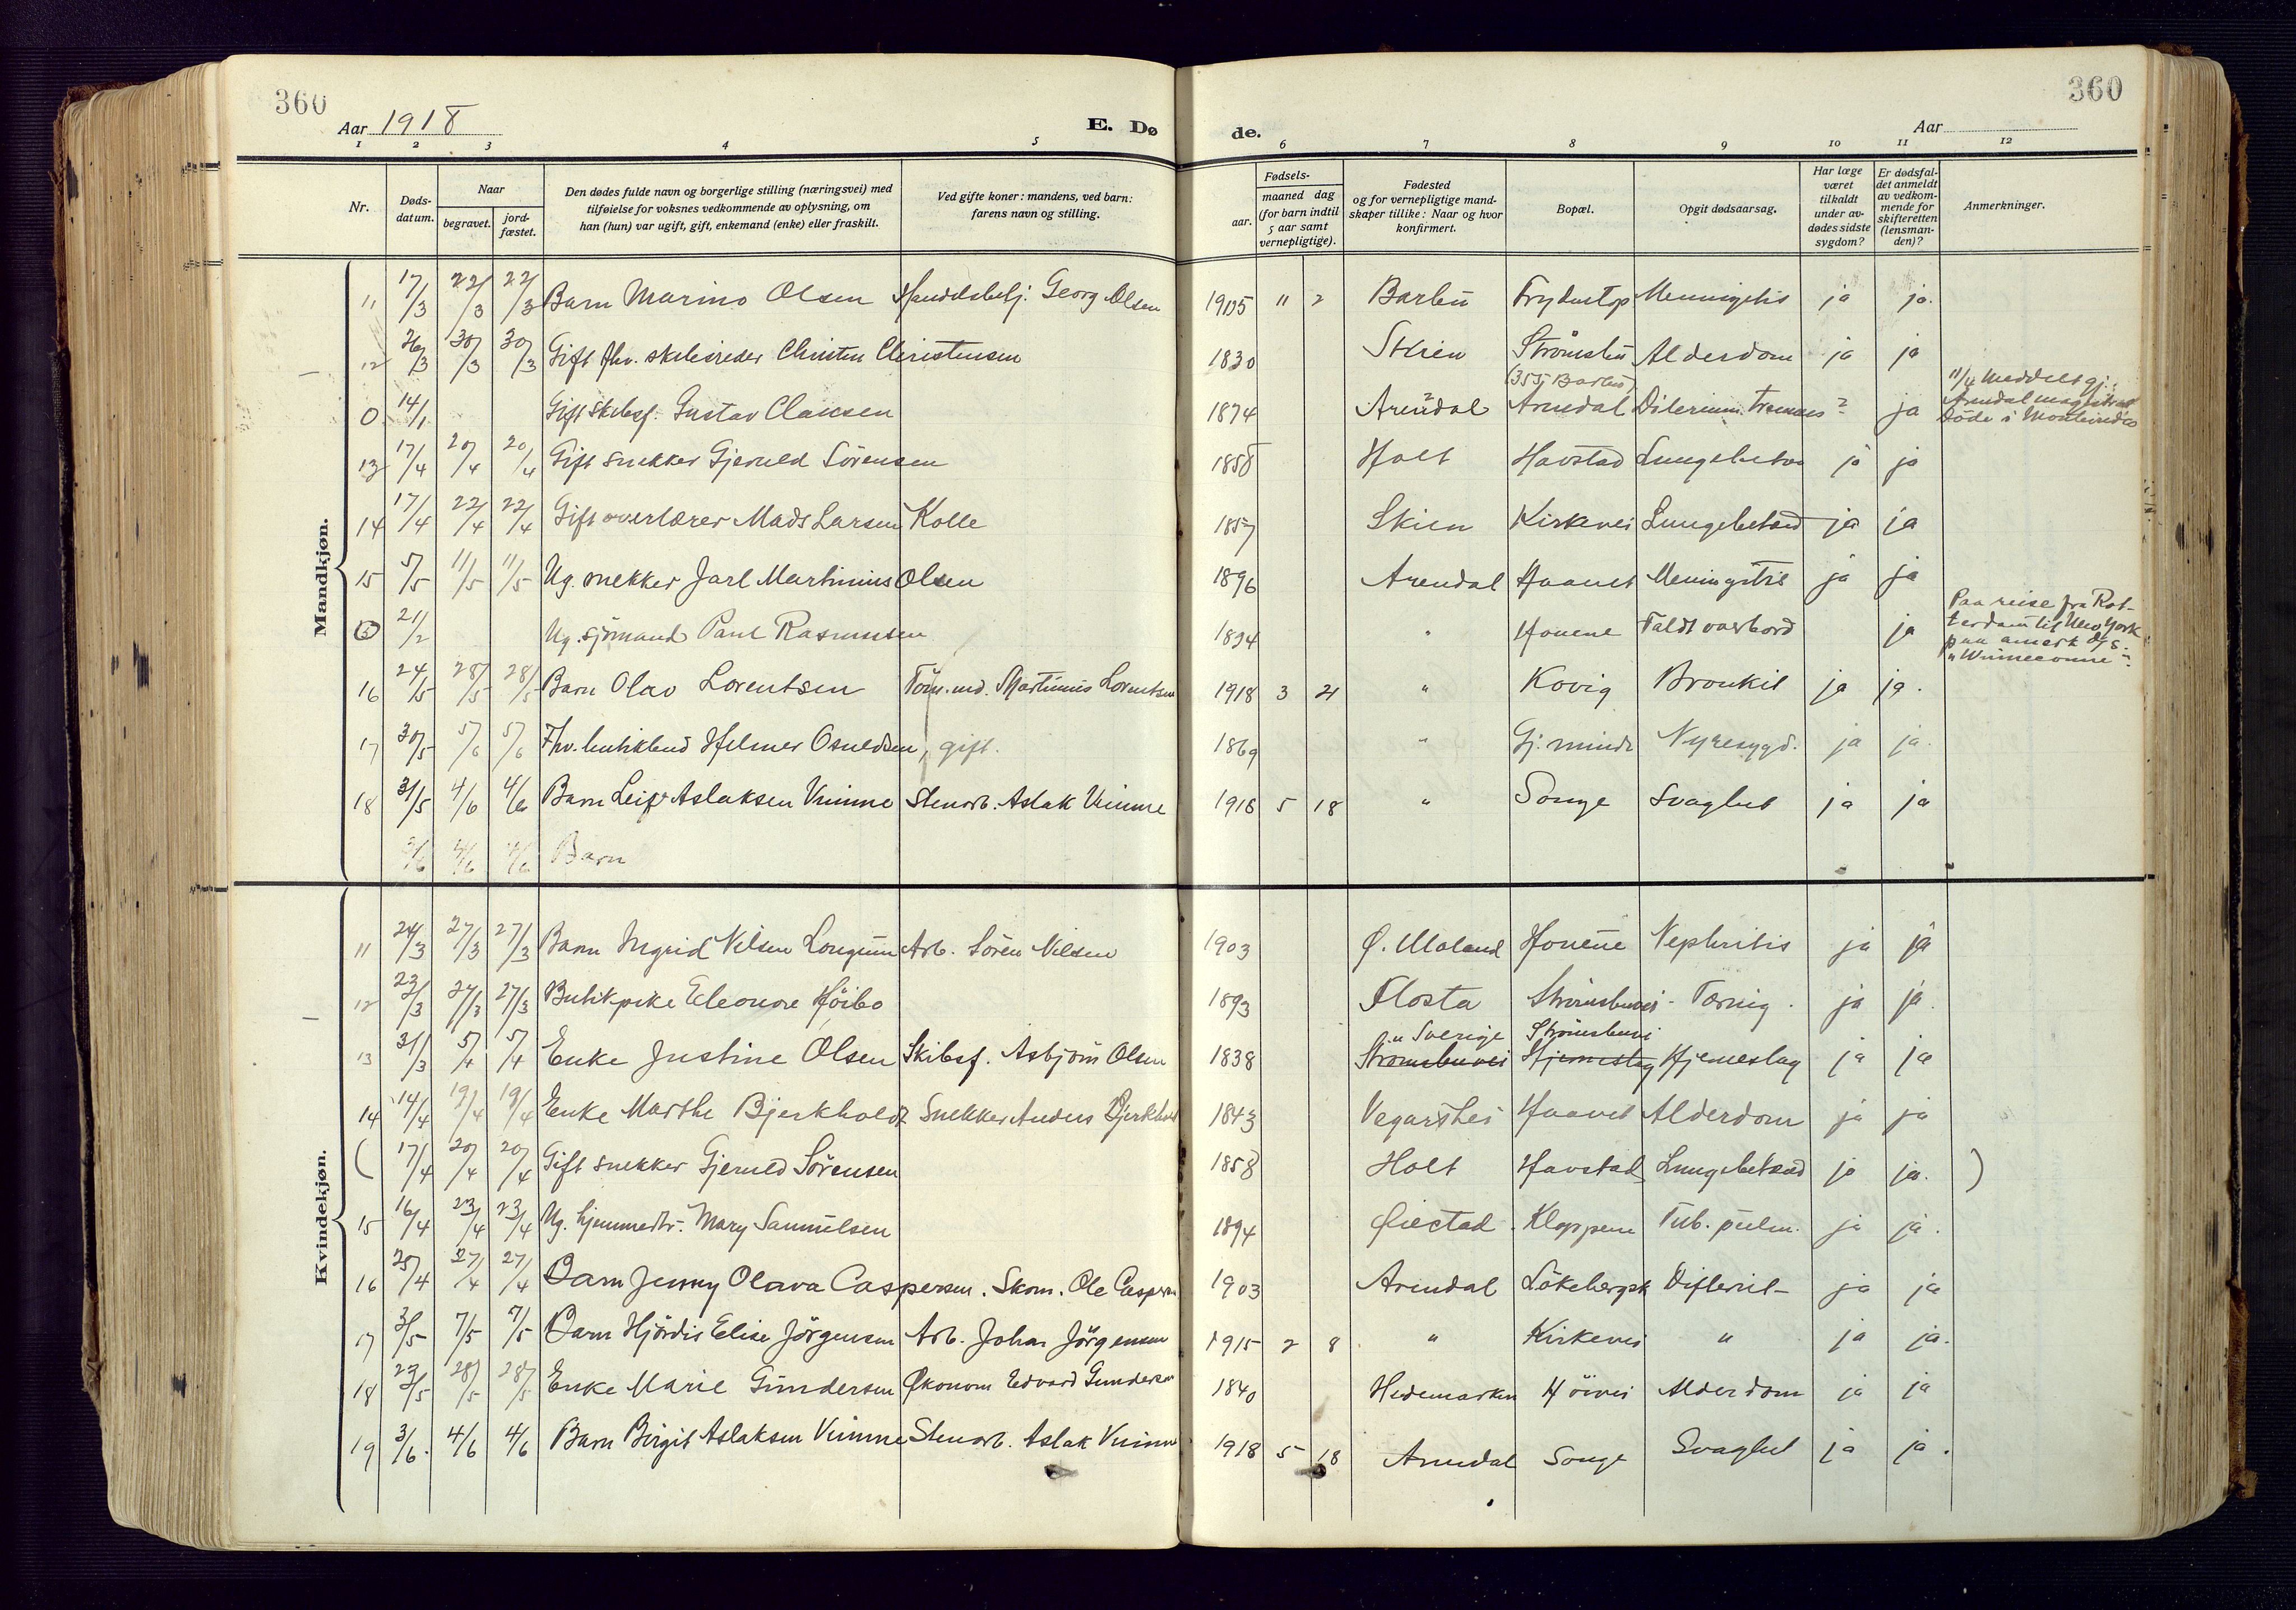 360
360
Aar 1918
E. Dø
de.
Aar
1 2 3 4 5 6 7 8 9 10 11 12
Nr.
Døds-
datum.
Naar
begravet.
jord-
fæstet.
Den dødes fulde navn og borgerlige stilling (næringsvei) med
tilføielse for voksnes vedkommende av oplysning, om
han (hun) var ugift, gift, enkemand (enke) eller fraskilt.
Ved gifte koner: mandens, ved barn:
farens navn og stilling.
Fødsels-
aar.
maaned dag
(for barn indtil
5 aar samt
vernepligtige).
Fødested
og for vernepligtige mand-
skaper tillike: Naar og hvor
konfirmert.
Bopæl.
Opgit dødsaarsag.
Har læge
været
tilkaldt
under av-
dødes sidste
sygdom?
Er dødsfal-
det anmeldt
av vedkom-
mende for
skifteretten
(lensman-
den)?
Anmerkninger.
Mandkjøn.
11 17/3 22/3 22/3 Barn Marino Olsen Handelsbetj. Georg Olsen 1905 11 2 Barbu Meningitis ja ja.
12 26/3 30/3 30/3 Gift fhv. skibsreder Christen Christensen 1830 Skien Strömsbu Alderdom ja ja
(355 Barbu)
0 14/1 Gift skibsf. Gustav Clausen 1874 Arendal Arendal Dilerium tremens? ja 11/4 Meddelt gj.
Arendal magistrat
Döde i Montevideo
13 17/4 20/4 20/4 Gift snekker Gjeruld Sörensen 1858 Holt Havstad ja ja
14 17/4 22/4 22/4 Gift overlærer Mads Larsen Kolle 1857 Skien Kirkevei Lungebetænd ja ja
15 5/5 11/5 11/5 Ug. snekker Jarl Martinius Olsen 1896 Arendal Haavet Meningitis ja ja
21/2 Ug. sjömand Paul Rasmussen 1894 " Houene Faldt overbord ja Paa reise fra Rot-
terdam til New York
paa amerk D/S.
"Winneconne".
16 24/5 28/5 28/5 Barn Olav Lorentsen Töm.md. Martinius Lorentsen 1918 3 21 " Kovig Bronkit ja ja.
17 30/5 5/6 5/6 Fhv. Hilmer Osuldsen, gift. 1869 " Gj. minde Nyresygd. ja ja.
18 31/5 4/6 4/6 Barn Leif Aslaksen Vrimme Stenarb. Aslak Vrimme 1918 5 18 " Songe Svaghet ja ja
31/6 4/6 4/6 Barn
Kvindekjøn.
11 24/3 27/3 27/3 Barn Ingrid Nilsen Longum Arb. Sören Nilsen 1903 Ø. Moland Houene Nephritis ja ja
12 23/3 27/3 27/3 Butikpike Eleonore Höibo 1893 Flosta Strömsbuvei - Tæring. ja ja.
" Sverige Strömsbuvei
13 31/3 5/4 5/4 Enke Justine Olsen Skibsf. Asbjörn Olsen 1838 Strömsbuvei Hjerneslag Hjerneslag ja ja
14 14/4 19/4 19/4 Enke Marthe Bjerkholdt Snekker Anders Bjerkholdt 1843 Vegårshei Haavet Alderdom ja ja
( 17/4 20/4 20/4 Gift snekker Gjeruld Sörensen 1858 Holt Havstad Lungebetænd ja ja. )
15 16/4 23/4 23/4 Ug. hjemmedtr. Mary Samuelsen 1894 Øiestad Kloppene Tub. pulm. ja ja.
16 25/4 27/4 27/4 Barn Jenny Olava Caspersen. Skom. Ole Caspersen 1903 Arendal Lökebergsk Difterit - ja ja
17 3/5 7/5 7/5 Barn Hjördis Elise Jörgensen Arb. Johan Jörgensen 1915 2 8 " Kirkevei " ja ja.
18 23/5 28/5 28/5 Enke Marie Gundersen Økonom Edvard Gundersen 1840 Hedemarken Höivei Alderdom ja ja
19 3/6. 4/6 4/6 Barn Birgit Aslaksen Vrimme Stenarb. Aslak Vrimme 1918 5 18 Arendal Songe Svaghet ja ja.